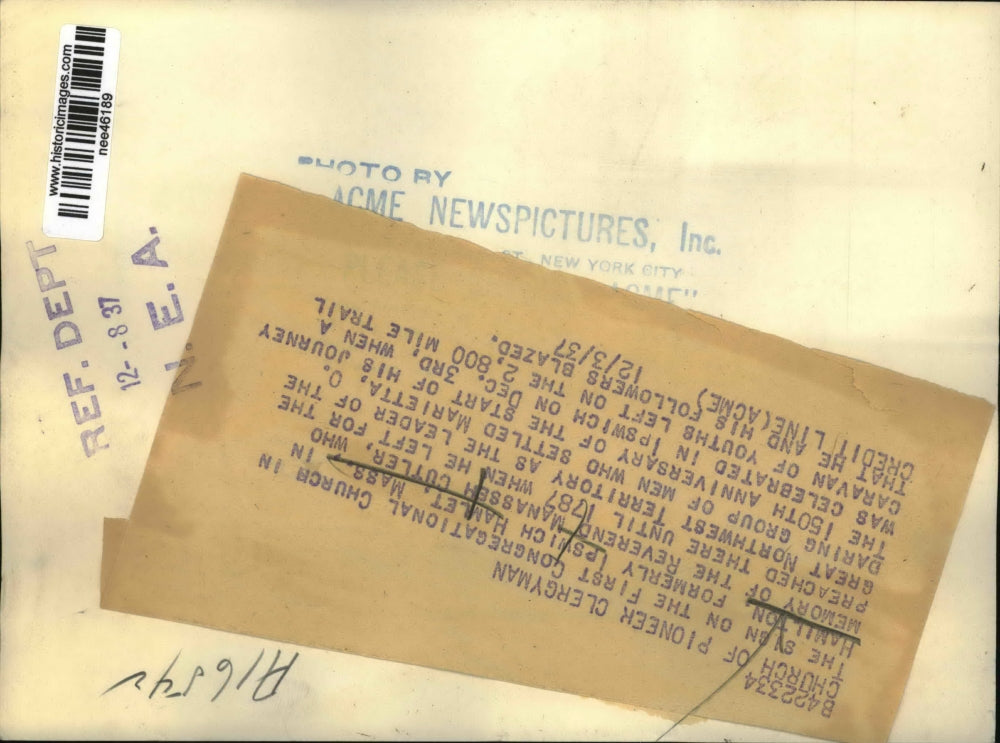 www.historicimages.com
nee46189
PHOTO BY
ACME NEWSPICTURES, Inc.
ST. NEW YORK CITY
"ACME"
REF. DEPT
12-8 37
N. E. A.
B422334
CHURCH OF PIONEER CLERGYMAN
THE SIGN ON THE FIRST CONGREGATIONAL CHURCH IN
HAMILTON FORMERLY IPSWICH HAMLET, MASS. IN
MEMORY OF THE REVEREND MANASSEH CUTLER, WHO
PREACHED THERE UNTIL 1787 WHEN HE LEFT FOR THE
GREAT NORTHWEST TERRITORY AS THE LEADER OF THE
DARING GROUP OF MEN WHO SETTLED MARIETTA, O.
THE 150TH ANNIVERSARY OF THE START OF HIS JOURNEY
WAS CELEBRATED IN IPSWICH ON DEC. 3RD, WHEN A
CARAVAN OF YOUTHS LEFT ON THE 2,800 MILE TRAIL
THAT HE AND HIS FOLLOWERS BLAZED.
CREDIT LINE(ACME) 12/3/37
A16542